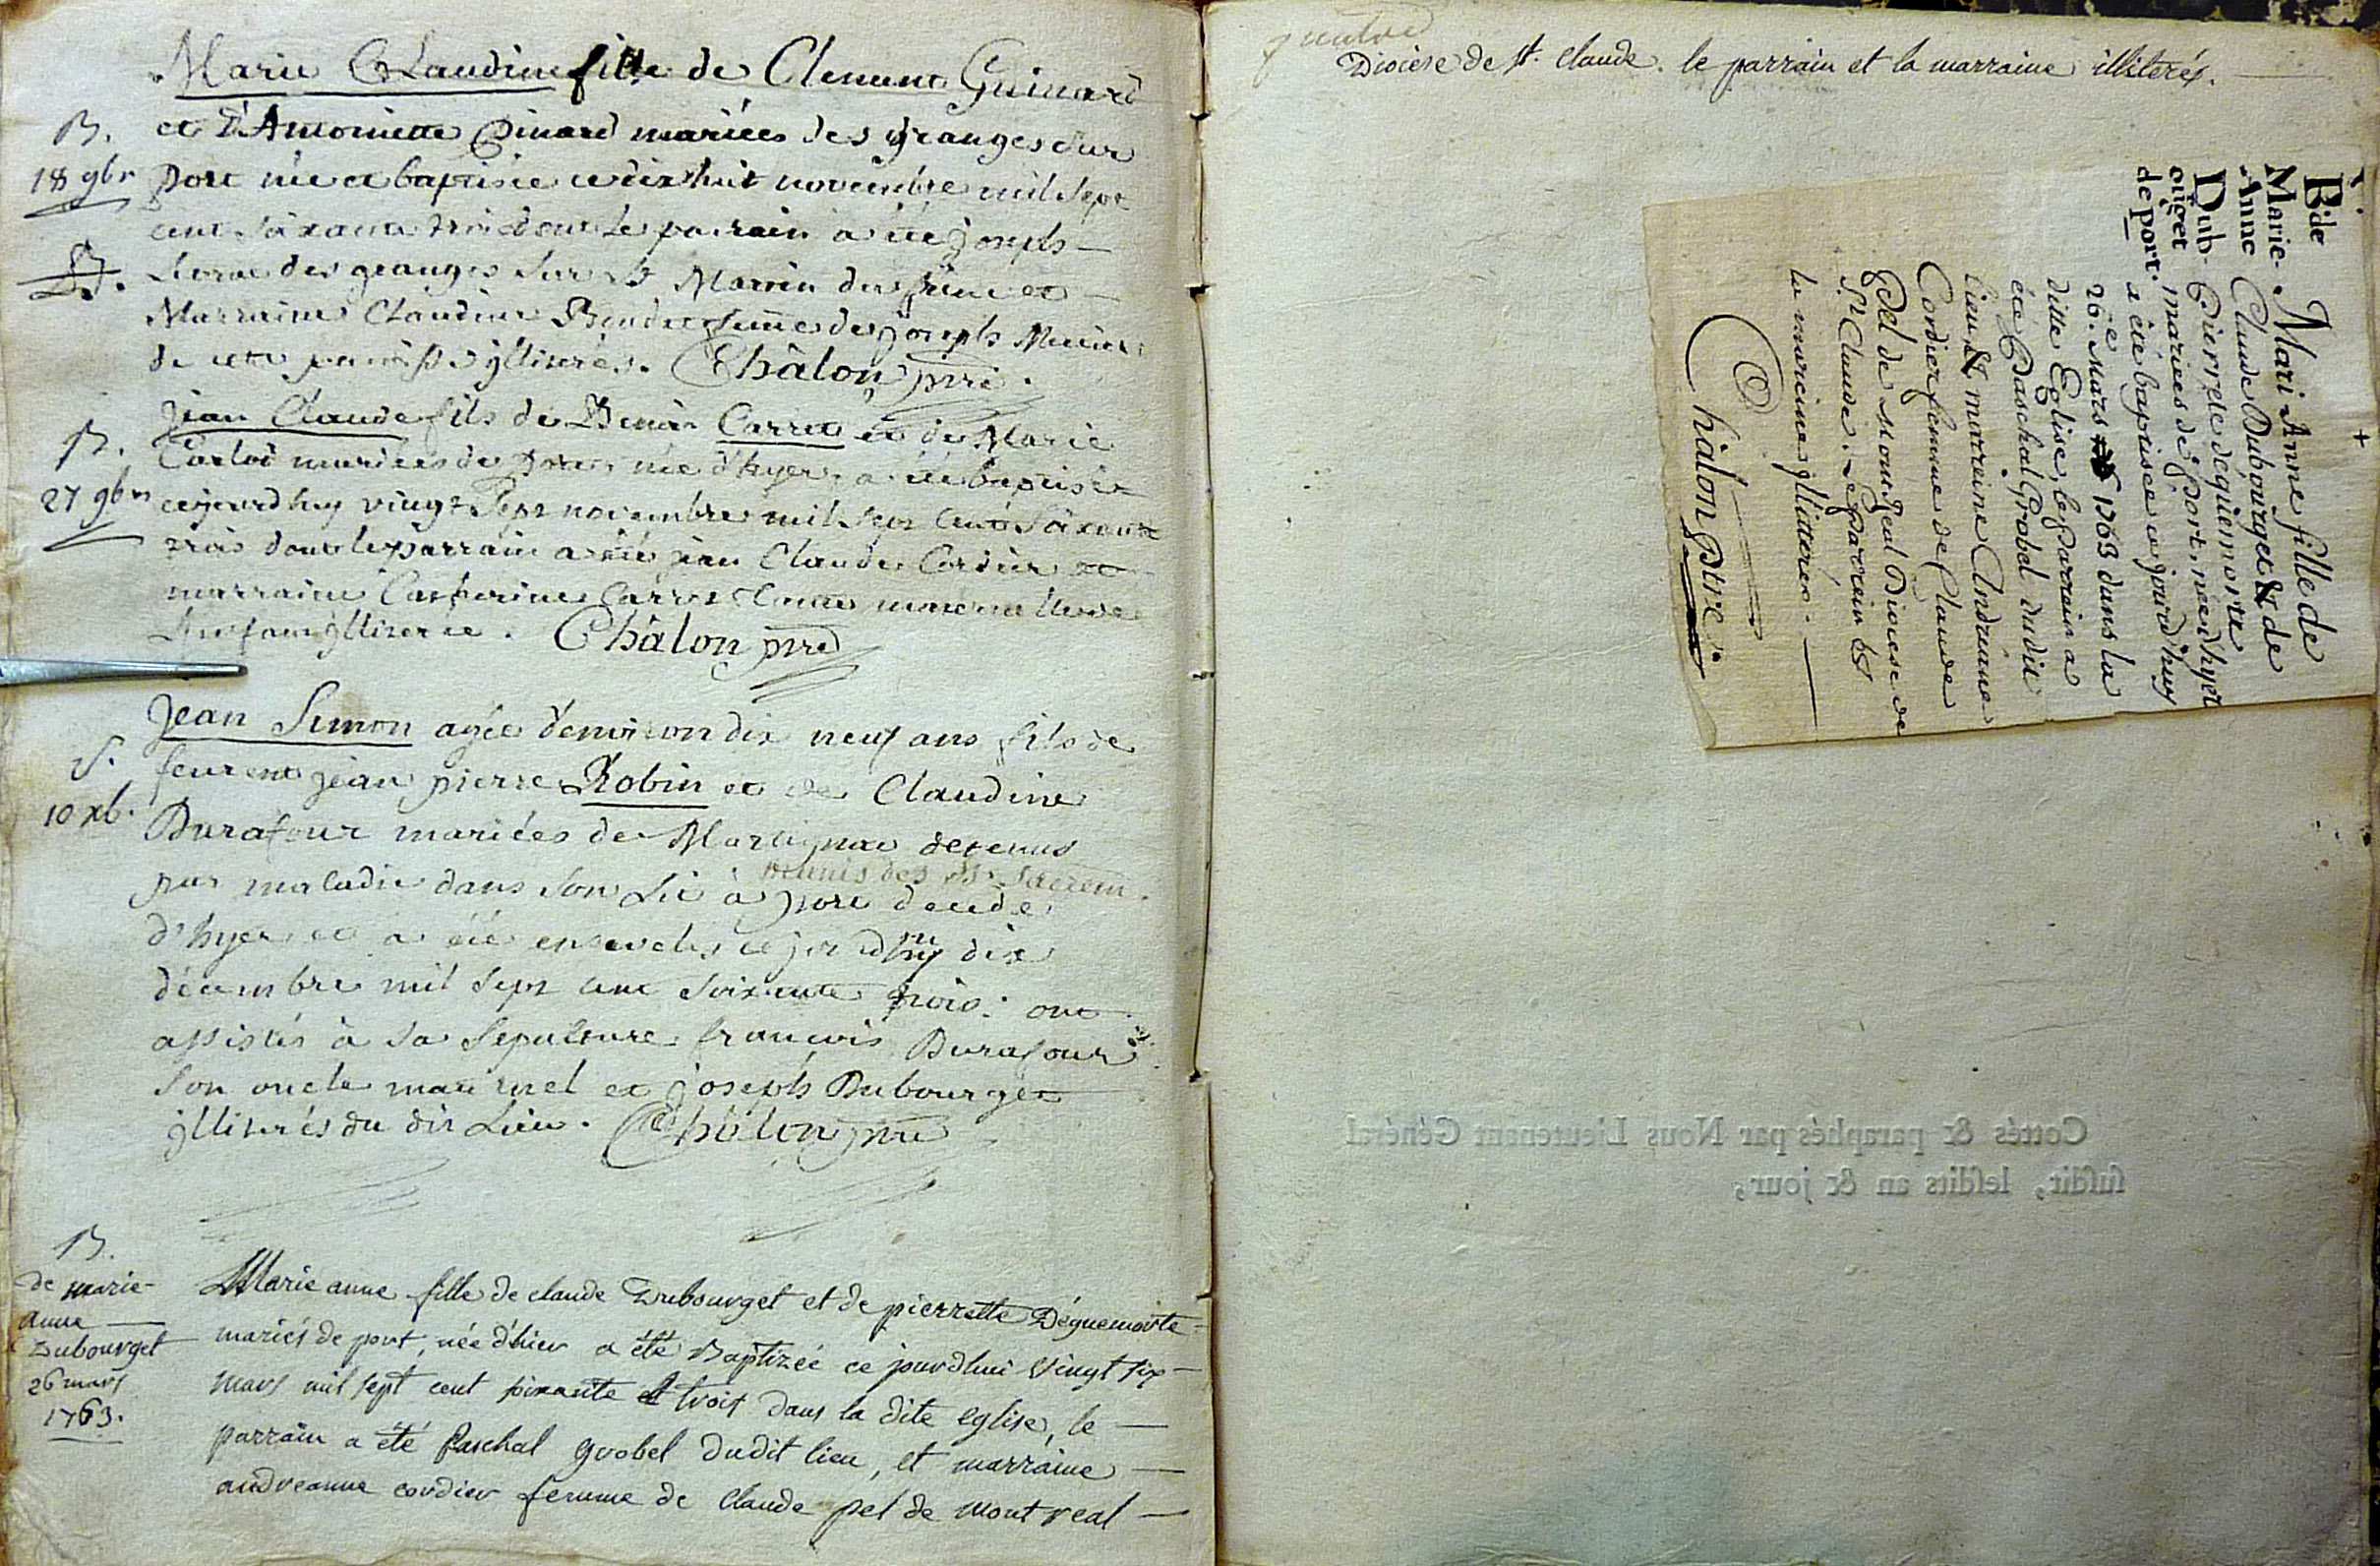 Marie Claudine fille de Clement Guinard
et d'Antoinette Pinard mariées des granges sur
B.
18 9br
port née et baptisée ce dix huit novembre mil sept
cent soixante trois dont le parrain a été joseph
des granges sur st Martin du frene et
Marraine Claudine femme de joseph
de cette paroisse jlliterés. Châlon ptre.
Jean Claude fils de Benoit Carret et de Marie
B.
27 9br
mariees de port née d'hyer, a été baptisée
cejourdhuy vingt sept novembre mil sept cent soixante
trois dont le parrain a été jean Claude Cordier et
marraine Catherine Carret tante maternelle de
l'enfant jlliterée. Châlon ptre
Jean Simon agée d'environ dix neuf ans fils de
S.
10 xb.
feurent jean pierre Robin et de Claudine
Durafour mariées de Martignac detenus
munis des Sts. Sacrem.
par maladie dans son Lit à port decede
d'hyer et a été ensevelis ce jourdhuy dix
décembre mil sept cent soixante trois: ont
assistés à sa sepulture francois Durafour
son oncle maternel et joseph Dubourget
jlliterés du dit Lieu. Châlon ptre
B.
de marie-
anne
Dubourget
26 mars
1763.
Marie anne fille de claude Dubourget et de pierrette Déguemorte
mariés de port, née d'hier a été Baptizée ce jourdhui vingt six
mars mil sept cent soixante et trois dans la dite eglise, le
parrain a été Paschal grobel dudit lieu, et marraine
andreanne cordier femme de claude pel de montreal
quatre
Diocèse de st. claude. le parrain et la marraine illiterés.
B. de
Marie-
Anne
Dub-
ourget
de port.
Mari Anne fille de
Claude Dubourget & de
Pierrete deguemorte
mariees de port, née d'hyer
a été baptisée cejourd'huy
26e. Mars 1763 dans la
ditte Eglise, le parrain a
été Paschal Grobel dudit
lieu & marreine Andreane
Cordier femme de Claude
Pel de Montreal Diocese de
St Claude. Le Parrein &
la marreine jlliterés.
Châlon ptre
Cottés & paraphés par Nous Lieutenant Général
susdit, lesdits an & jour,